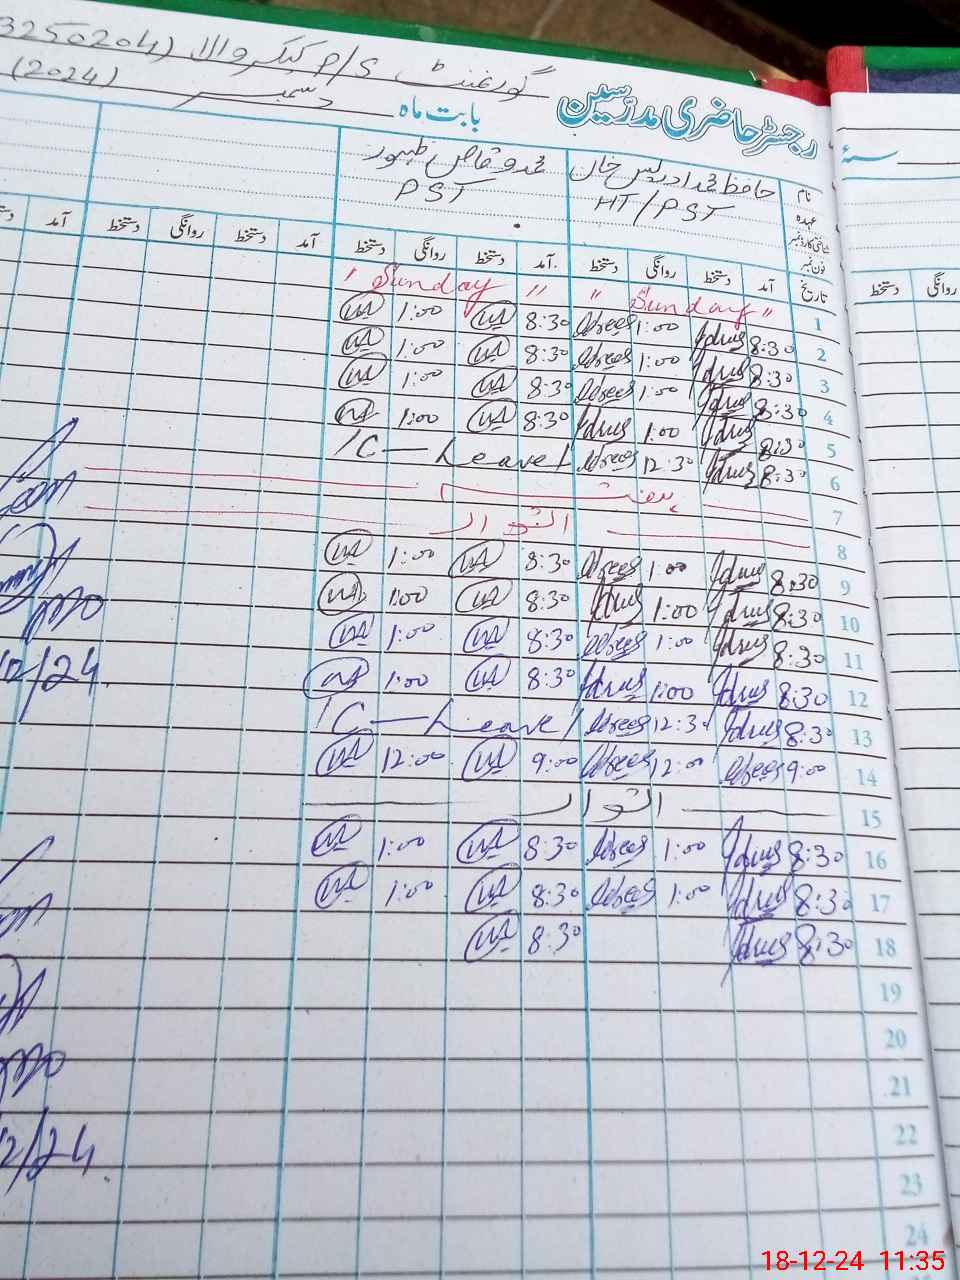 گورنمنٹ P/S کیکر والا (3250204
رجسٹر حاضری مدرسین بابت ماہ دسمبر (2024)
سنہ
نام حافظ محمد ادریس خان محمد وقاص ظہور
عہدہ HT/PST PST
فون نمبر
تاریخ آمد دستخط روانگی دستخط آمد دستخط روانگی دستخط آمد دستخط روانگی دستخط آمد
روانگی دستخط
1 " Sunday " " Sunday "
2 8:30 Idrees 1:00 Idrees 8:30 1:00
3 8:30 Idrees 1:00 Idrees 8:30 1:00
4 8:30 Idrees 1:00 Idrees 8:30 1:00
5 8:30 Idrees 1:00 Idrees 8:30 1:00
6 8:30 Idrees 12:30 Idrees / C — Leave /
7 ہفتہ
8 اتوار
9 8:30 Idrees 1:00 Idrees 8:30 1:00
10 8:30 Idrees 1:00 Idrees 8:30 1:00
11 8:30 Idrees 1:00 Idrees 8:30 1:00
12 8:30 Idrees 1:00 Idrees 8:30 1:00
13 8:30 Idrees 12:30 Idrees / C — Leave /
14 9:00 Idrees 12:00 Idrees 9:00 12:00
15 اتوار
16 8:30 Idrees 1:00 Idrees 8:30 1:00
17 8:30 Idrees 1:00 Idrees 8:30 1:00
18 8:30 Idrees 8:30
19
20
21
22
23
24
12/24
12/24
18-12-24 11:35